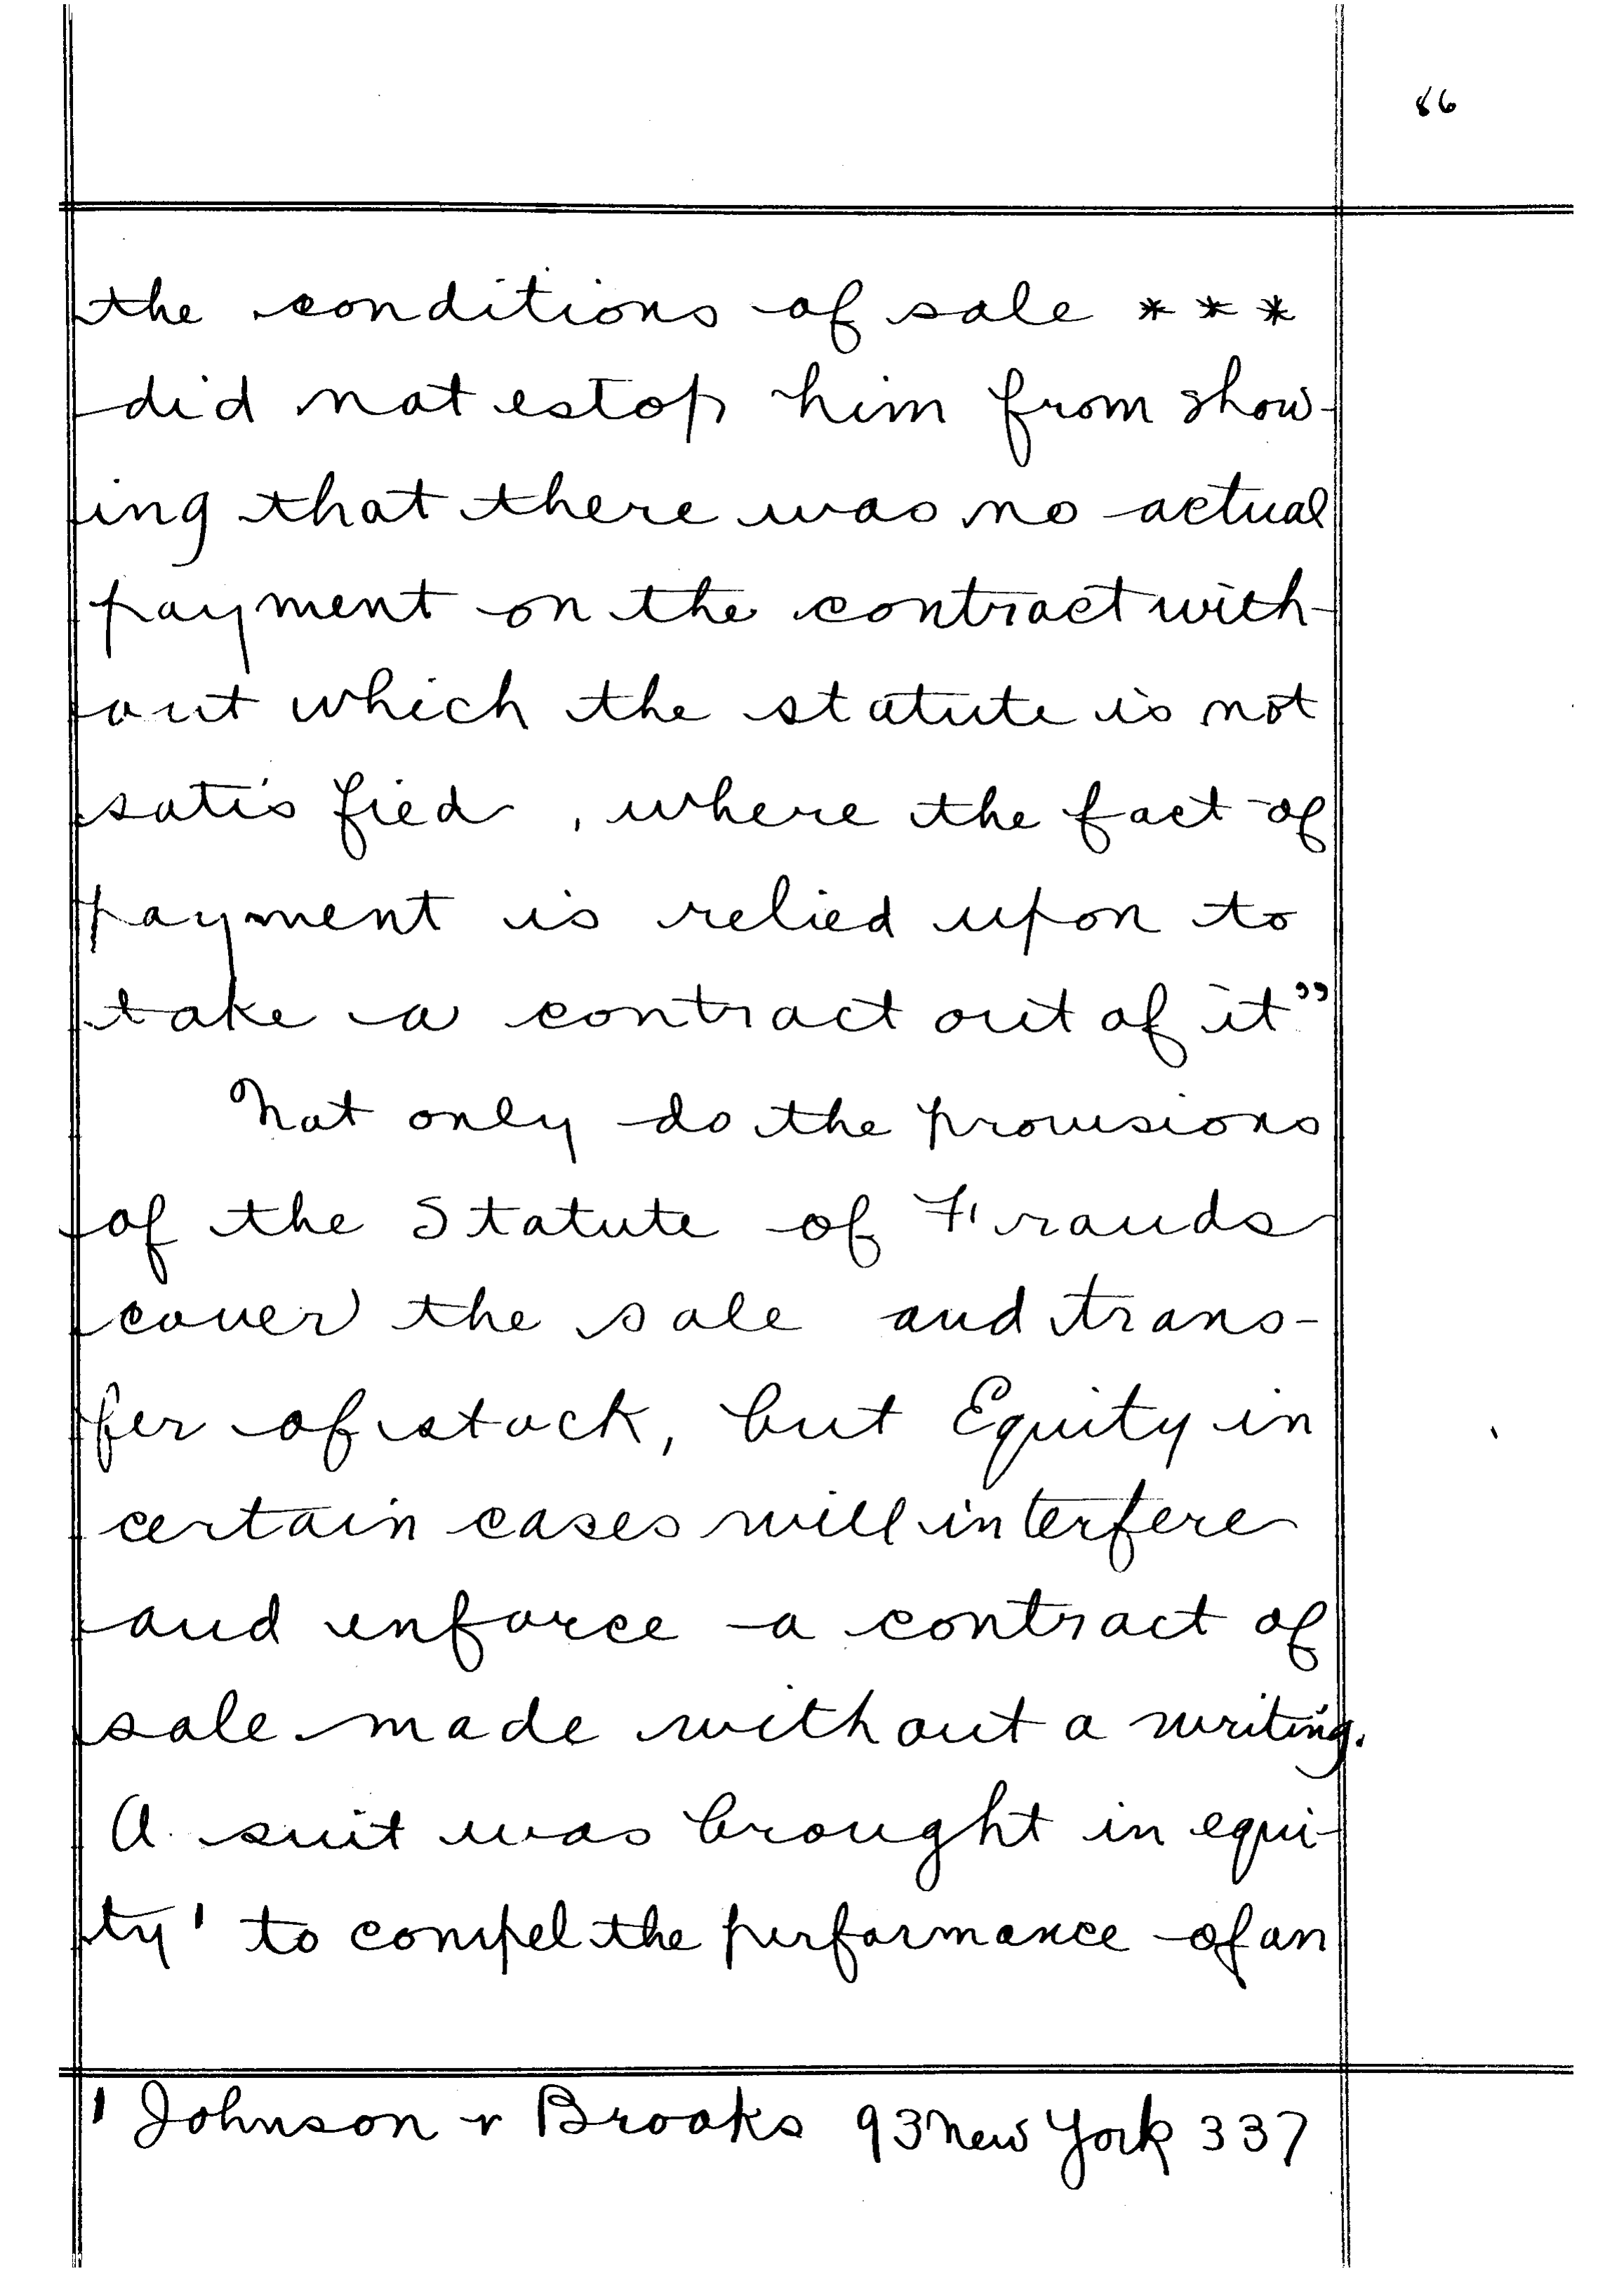 86
the conditions of sale * * *
did not estop him from show-
ing that there was no actual
payment on the contract with-
out which the statute is not
satisfied, where the fact of
payment is relied upon to
take a contract out of it"
Not only do the provisions
of the Statute of Frauds
cover the sale and trans-
fer of stock, but Equity in
certain cases will interfere
and enforce a contract of
sale made without a writing.
A suit was brought in equi-
ty¹ to compel the performance of an
¹ Johnson v Brooks 93 New York 337